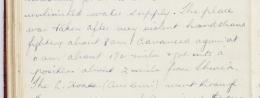 unlimited water supply. The place
was taken after very violent hand to hand
fighting about 8am. I advanced again at
am about 1½ miles & got into a
position about 2 miles from
The L. went through